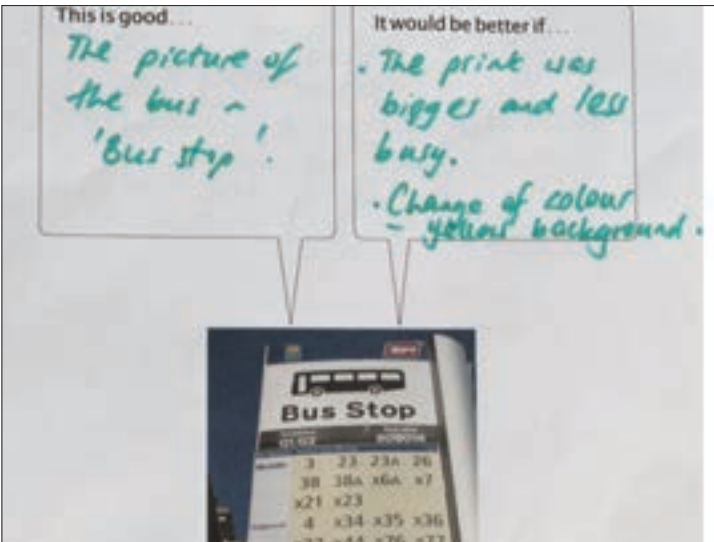 This is good...
The picture of
the bus -
'Bus stop'.
It would be better if...
. The print was
bigger and less
busy.
. Change of colour
- yellow background.
Bus Stop
3 23 23A 26
38 38A x6A x7
x21 x23
4 x34 x35 x36